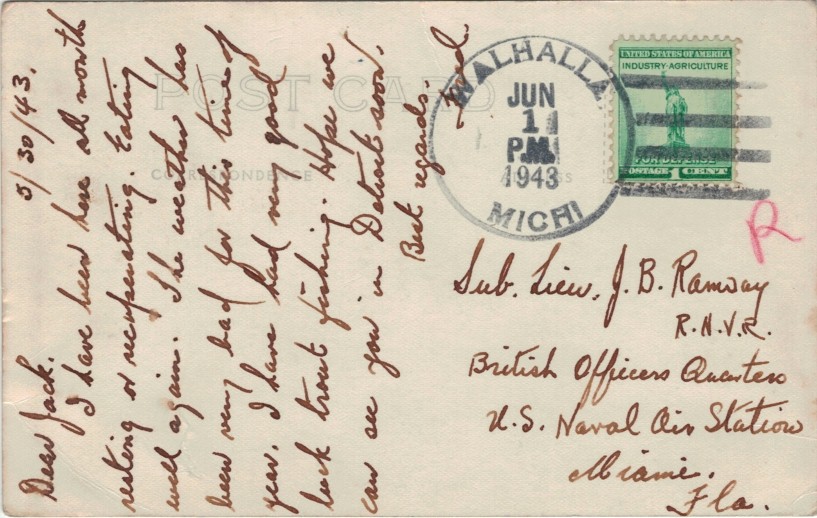 POST CARD
CORRESPONDENCE
5/30/43.
Dear Jack.
I have been here all month
resting or recuperating. Eating
well again. The weather has
been very bad for this time of
year. I have had very good
luck trout fishing. Hope we
can see you in Detroit soon.
Best regards.
WALHALLA.
JUN
1
P.M.
1943
MICH
UNITED STATES OF AMERICA
INDUSTRY·AGRICULTURE
FOR DEFENSE
POSTAGE 1 CENT
R
Sub. Lieu. J. B. Ramsay
R.N.V.R.
British Officers Quarters
U.S. Naval Air Station
Miami.
Fla.